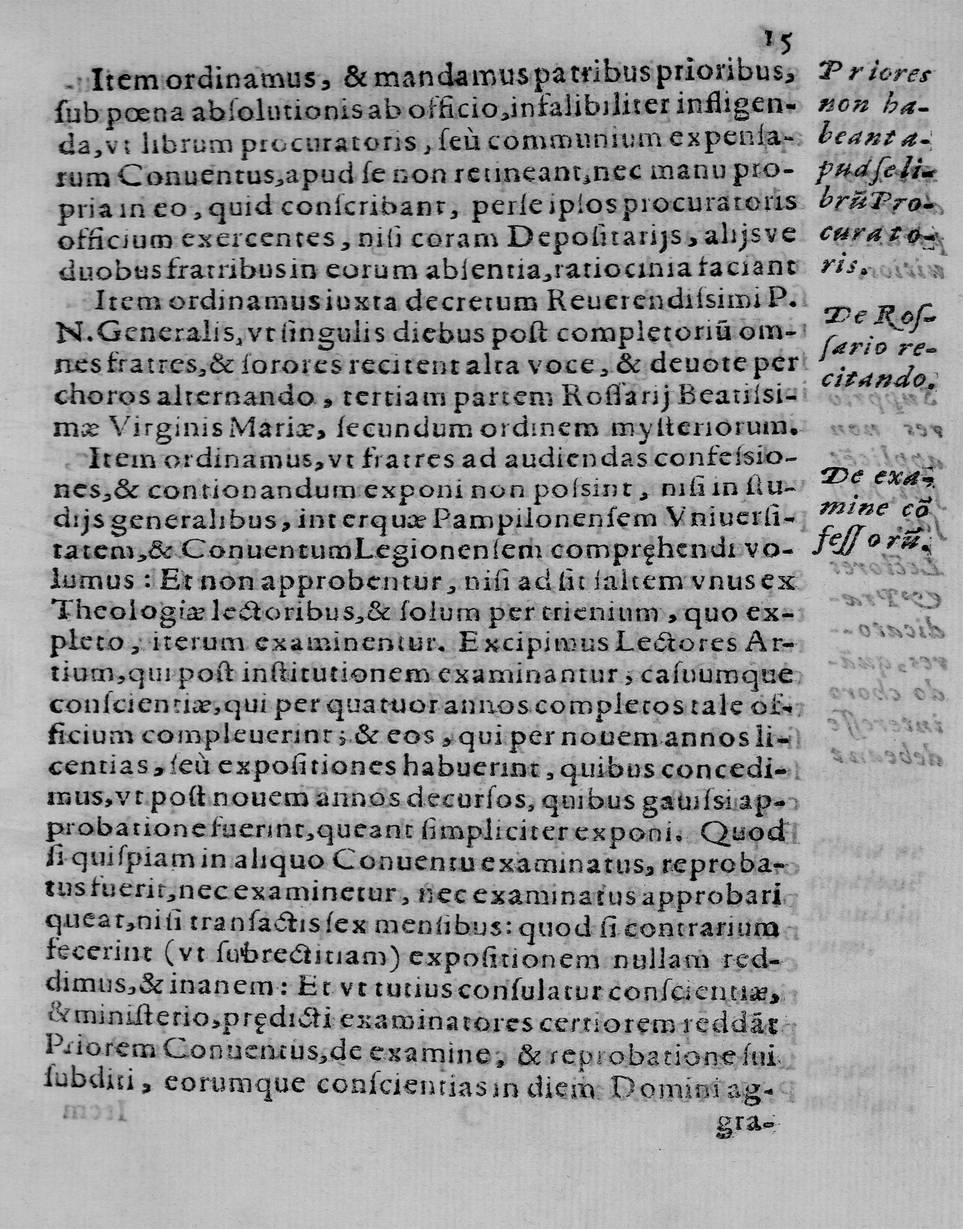 15
Item ordinamus, & mandamus patribus prioribus,
ſub pœna abſolutionis ab officio, infalibiliter infligen-
da, vt librum procuratoris, ſeù communium expenſa-
rum Conuentus, apud ſe non retineant, nec manu pro-
pria in eo, quid conſcribant, per ſe ipſos procuratoris
officium exercentes, niſi coram Depoſitarijs, alijsve
duobus fratribus in eorum abſentia, ratiocinia faciant
Item ordinamus iuxta decretum Reuerendiſsimi P.
N. Generalis, vt ſingulis diebus poſt completoriũ om-
nes fratres, & ſorores recitent alta voce, & deuote per
choros alternando, tertiam partem Roſſarij Beatiſsi-
mæ Virginis Mariæ, ſecundum ordinem myſteriorum.
Item ordinamus, vt fratres ad audiendas confeſsio-
nes, & contionandum exponi non poſsint, niſi in ſtu-
dijs generalibus, interquæ Pampilonenſem Vniuerſi-
tatem, & Conuentum Legionenſem compręhendi vo-
lumus: Et non approbentur, niſi ad ſit ſaltem vnus ex
Theologiæ lectoribus, & ſolum per trienium, quo ex-
pleto, iterum examinentur. Excipimus Lectores Ar-
tium, qui poſt inſtitutionem examinantur, caſuumque
conſcientiæ, qui per quatuor annos completos tale of-
ficium compleuerint; & eos, qui per nouem annos li-
centias, ſeù expoſitiones habuerint, quibus concedi-
mus, vt poſt nouem annos decurſos, quibus gauiſsi ap-
probatione fuerint, queant ſimpliciter exponi. Quod
ſi quiſpiam in aliquo Conuentu examinatus, reproba-
tus fuerit, nec examinetur, nec examinatus approbari
queat, niſi tranſactis ſex menſibus: quod ſi contrarium
fecerint (vt ſubrectitiam) expoſitionem nullam red-
dimus, & inanem: Et vt tutius conſulatur conſcientiæ,
& miniſterio, prędicti examinatores certiorem reddãt
Priorem Conuentus, de examine, & reprobatione ſui
ſubditi, eorumque conſcientias in diem Domini ag-
gra-
Priores
non ha-
beant a-
pud ſe li-
brũ Pro-
curato-
ris.
De Roſ-
ſario re-
citando.
De exa-
mine cõ
feſſorũ.